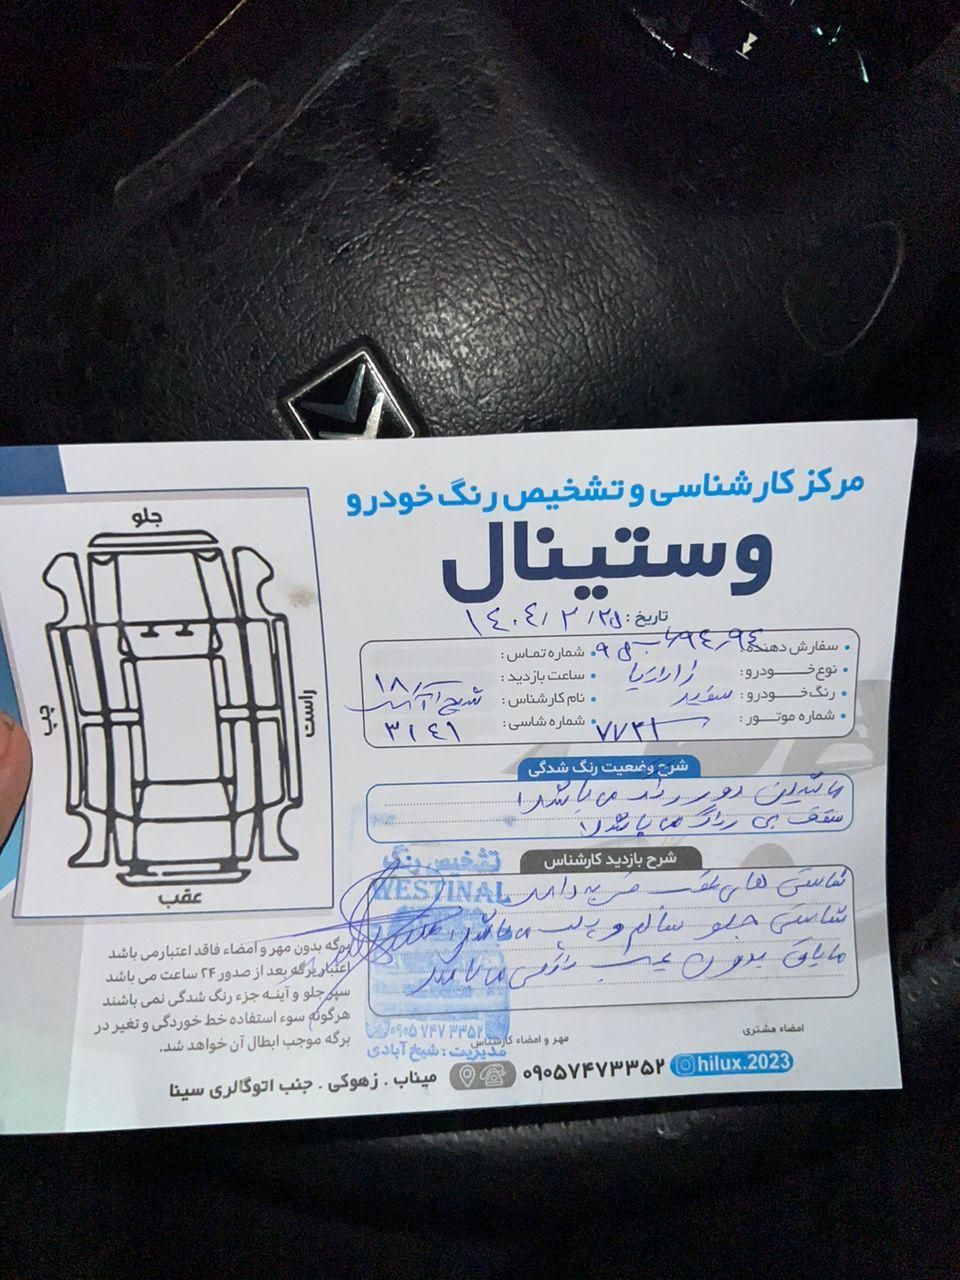 مرکز کارشناسی و تشخیص رنگ خودرو
وستینال
تاریخ :
سفارش دهنده:
شماره تماس :
نوع خودرو:
ساعت بازدید : ۱۸
رنگ خودرو: سفید
نام کارشناس :
شماره موتور : ۷۷۳۱
شماره شاسی : ۳۱۴۱
شرح وضعیت رنگ شدگی
ماشین دور رنگ می باشد
سقف بی رنگ می باشد
شرح بازدید کارشناس
شاستی های عقب ضربه دارد
شاستی جلو سالم و پلمپ میباشد
مابقی بدون عیب می باشد
جلو
راست
چپ
عقب
تشخیص رنگ
WESTINAL
۰۹۰۵ ۷۴۷ ۳۳۵۲
مدیریت : شیخ آبادی
برگه بدون مهر و امضاء فاقد اعتبار می باشد
اعتبار برگه بعد از صدور ۲۴ ساعت می باشد
سپر جلو و آینه جزء رنگ شدگی نمی باشند
هرگونه سوء استفاده خط خوردگی و تغیر در
برگه موجب ابطال آن خواهد شد.
امضاء مشتری
مهر و امضاء کارشناس
hilux.2023
۰۹۰۵۷۴۷۳۳۵۲
میناب . زهوکی . جنب اتوگالری سینا